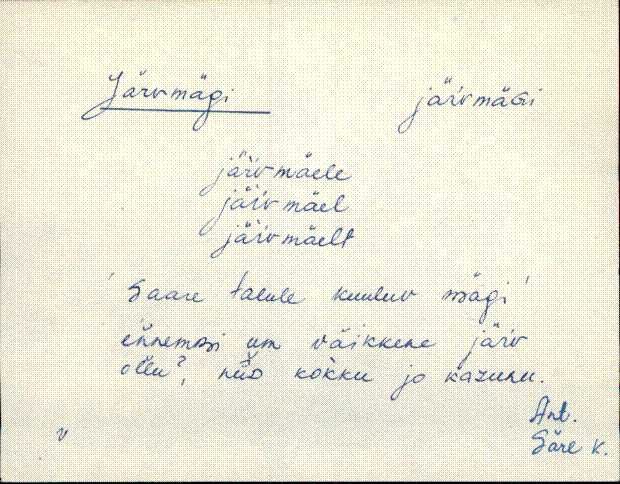 Järvmägi
järvmäGi
järvmäele
järvmäel
järvmäelt
'Saare talule kuuluv mägi'
ennemBi um väikkene järv
ollu?, nüD kokku jo kazunu.
Ant.
Säre k.
v